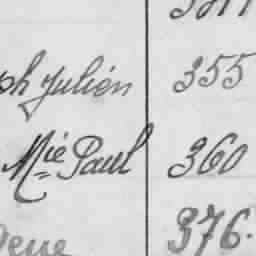 ph Julién 355
Mie Paul 360
376.